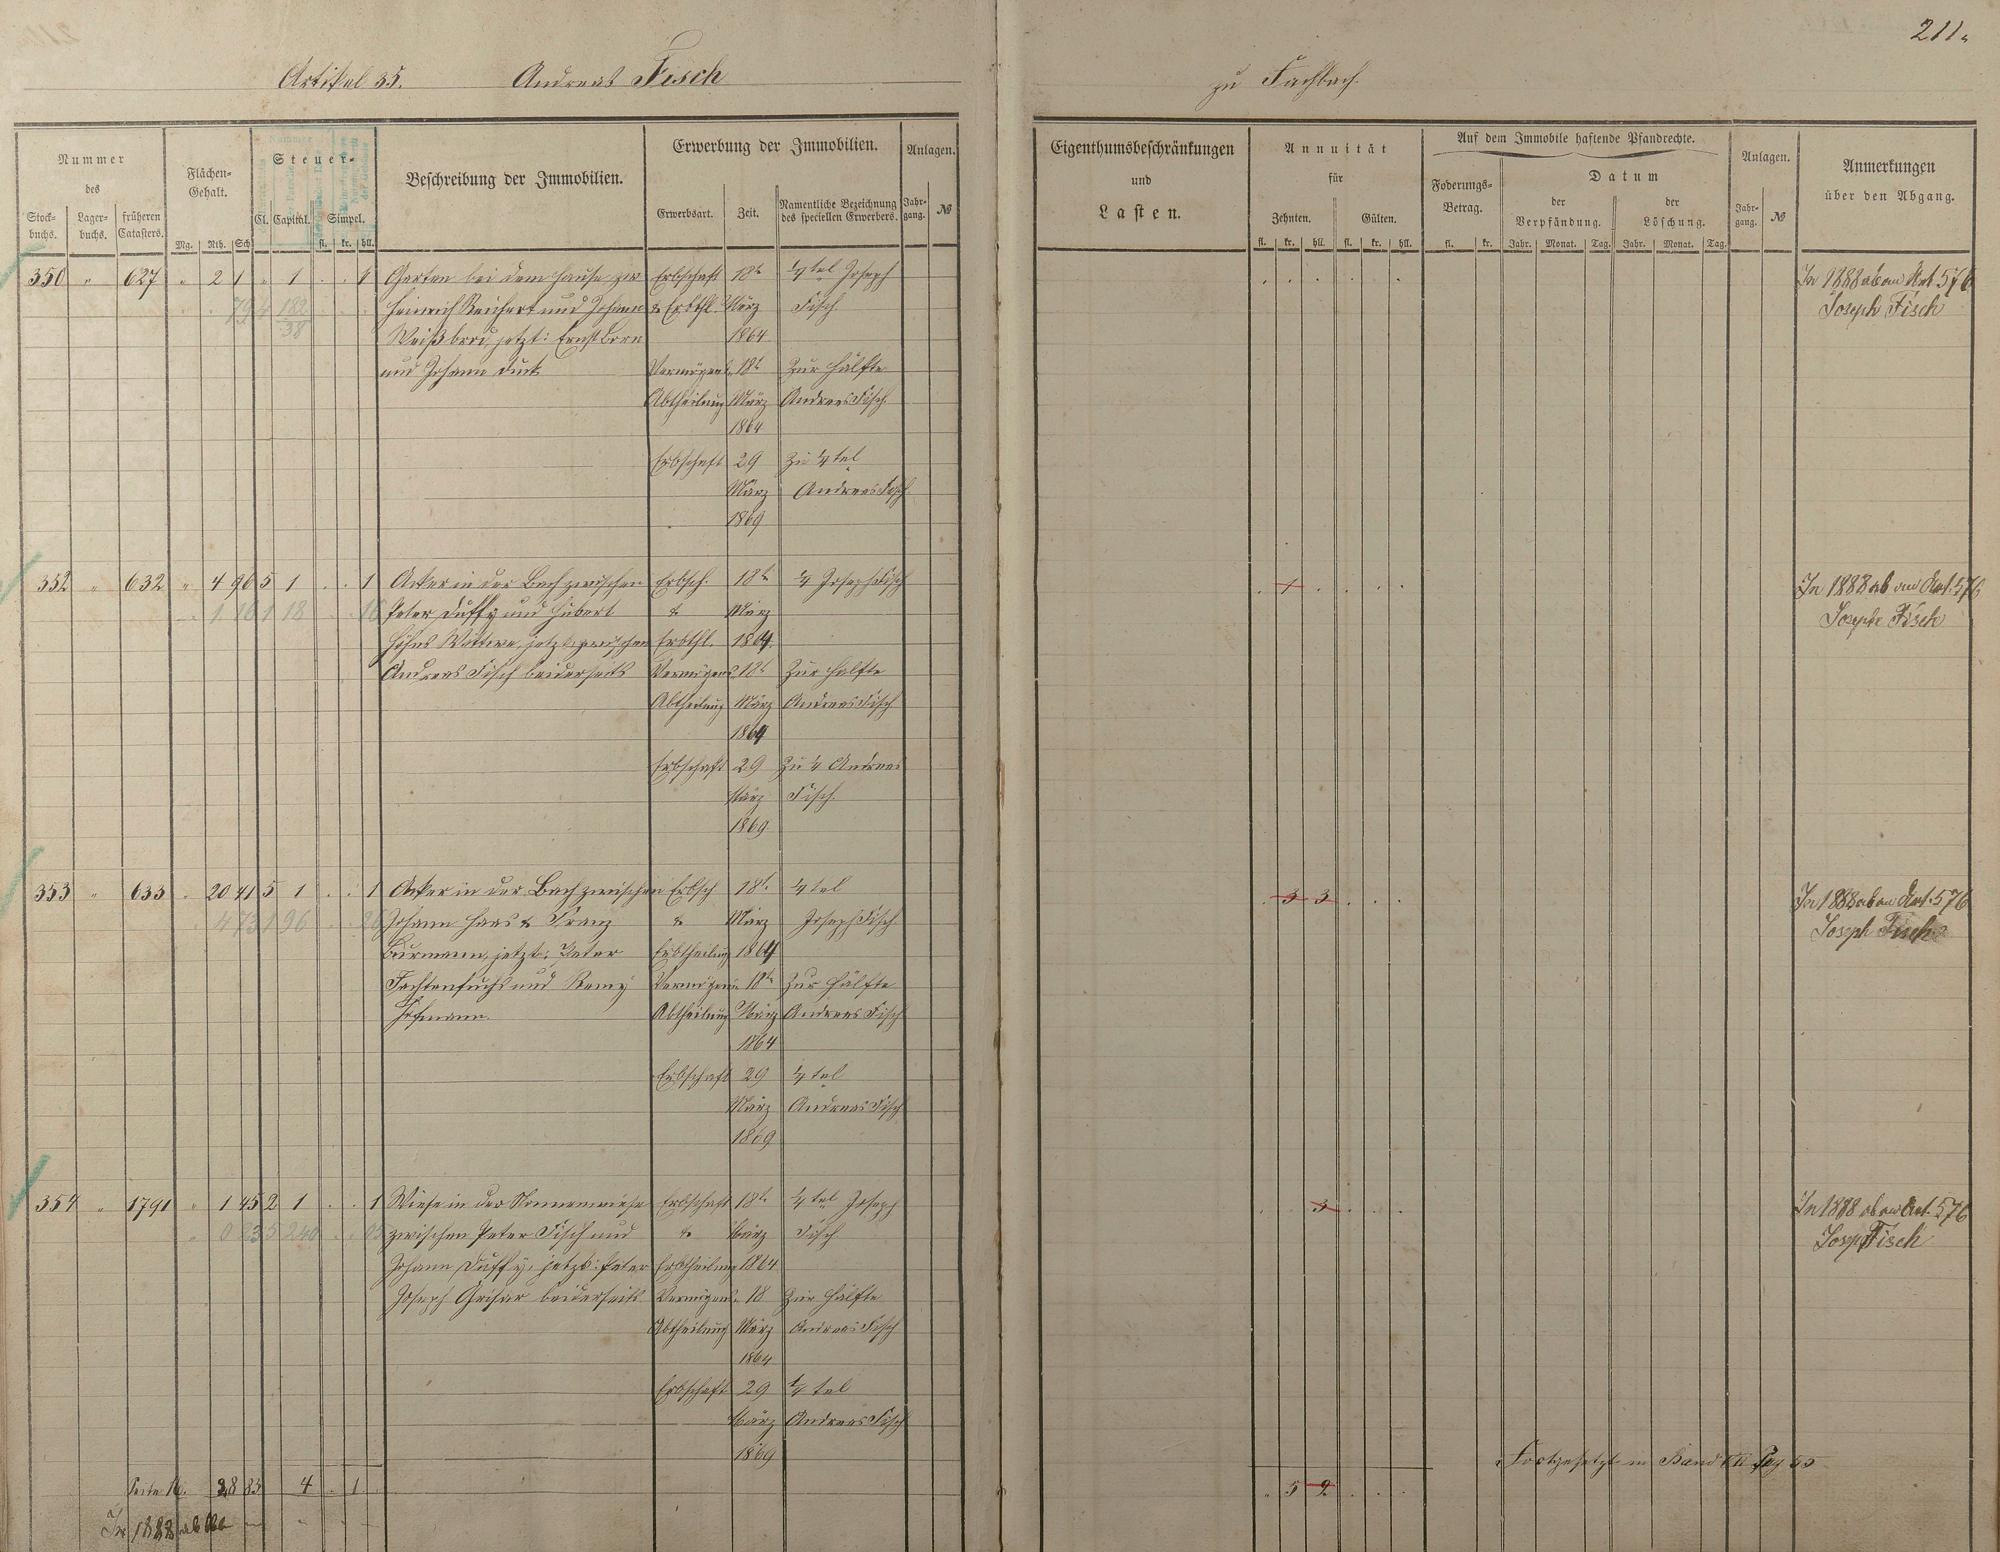 211.
Artikel 35. Andreas Fisch zu Fachbach.
Nummer
des
Stock-
buchs.
Lager-
buchs.
früheren
Catasters.
Flächen-
Gehalt.
Mg. Rth. Sch
Steuer-
Cl. Capital. Simpel.
fl. kr. hll.
Beschreibung der Immobilien.
Erwerbung der Immobilien.
Erwerbsart. Zeit.
Namentliche Bezeichnung
des speciellen Erwerbers.
Anlagen.
Jahr-
gang. №
Eigenthumsbeschränkungen
und
Lasten.
Annuität
für
Zehnten. Gülten.
fl. kr. hll. fl. kr. hll.
Auf dem Immobile haftende Pfandrechte.
Foderungs-
Betrag.
fl. kr.
Datum
der
Verpfändung.
Jahr. Monat. Tag.
der
Löschung.
Jahr. Monat. Tag.
Anlagen.
Jahr-
gang. №
Anmerkungen
über den Abgang.
350 " 627 " 2 1 " 1 . . 1 Garten bei dem Hause zw Erbschaft 18t 1/4tel Joseph In 1888 ab an Art 576
79 4 182 Heinrich Reichert und Johann & Erbthl. März Fisch Joseph Fisch
38 Weißbrod, jetzt: Ernst Born 1864
und Johann Vermögens 18t Zur Hälfte
Abtheilung März Andreas Fisch
1864
Erbschaft 29 Zu 1/4tel
März Andreas Fisch
1869
352 " 632 " 4 96 5 1 . . 1 Acker in der Bach zwischen Erbsch. 18t 1/4 Joseph Fisch 1 In 1888 ab an Art. 576
1 16 1 18 16 Peter Duffy und Hubert & März Joseph Fisch
Höhns Wittwe, jetzt zwischen Erbthl. 1864
Andreas Fisch beiderseits Vermögens 18t Zur Hälfte
Abtheilung März Andreas Fisch
1864
Erbschaft 29 Zu 1/4 Andreas
März Fisch.
1869.
353 " 633 " 20 41 5 1 . . 1 Acker in der Bach zwischen Erbsch 18t 1/4tel 3 3 In 1888 ab an Art. 576
4 73 1 96 26 Johann Haas & Franz & März Joseph Fisch. Joseph Fisch
Burmann, jetzt: Peter Erbtheilung 1864
und Remy Vermögens 18t Zur Hälfte
Hofmann. Abtheilung März Andreas Fisch
1864
Erbschaft 29 1/4tel
März Andreas Fisch
1869
354 " 1791 " 1 45 2 1 . . 1 Wiese in der Nonnenwiese Erbschaft 18t 1/4tel Joseph 3 In 1888 ab an Art. 576
0 23 5 240 05 zwischen Peter Fisch und & März Fisch Joseph Fisch
Johann Duffy, jetzt: Peter Erbtheilung 1864
Joseph Grisar beiderseits Vermögens 18 Zur Hälfte
Abtheilung März Andreas Fisch
1864
Erbschaft 29 1/4tel
März Andreas Fisch
1869
Fortgesetzt in Band VII Pag 55
Seite 28 83 4 . 1 . " 5 2
In 1888 ab